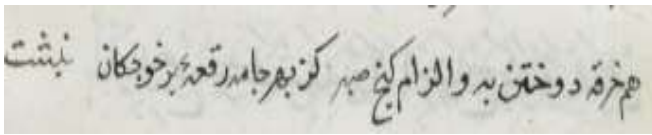 هم خرقه دوختن به و الزام کنج صبر کز بهر جامه رقعه بر خواجگان نبشت